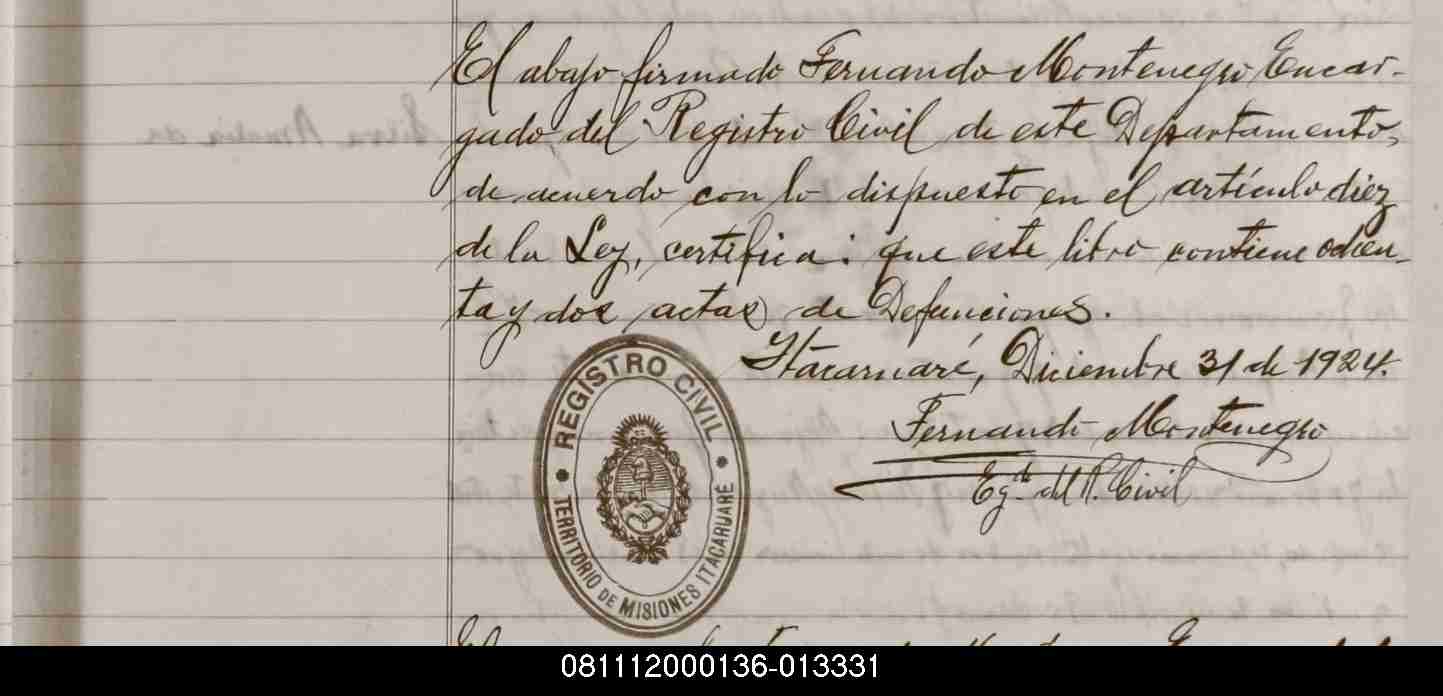 El abajo firmado Fernando Montenegro Encar-
gado del Registro Civil de este Departamento,
de acuerdo con lo dispuesto en el artículo diez
de la Ley, certifica: que este libro contiene ochen-
ta y dos actas de Defunciones.
Itacaruaré, Diciembre 31 de 1924.
Fernando Montenegro
Egdo. del R. Civil
REGISTRO CIVIL
TERRITORIO DE MISIONES ITACARUARÉ
081112000136-013331